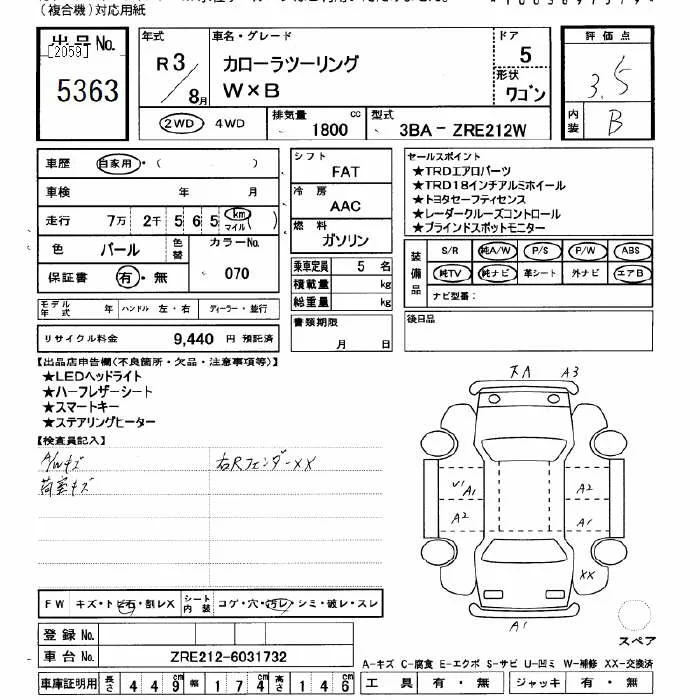 (複合機)対応用紙
出品No.
[2059]
5363
年式
R3
8月
車名・グレード
カローラツーリング
W×B
ドア
5
形状
ワゴン
評価点
3.5
内装
B
2WD 4WD
排気量 cc
1800
型式
3BA-ZRE212W
車歴 自家用・( )
車検 年 月
走行 7万 2千 5 6 5 km マイル
色 パール 色替
カラーNo.
070
保証書 有・無
モデル年式 年 ハンドル 左・右 ディーラー・並行
リサイクル料金 9,440 円 預託済
シフト
FAT
冷房
AAC
燃料
ガソリン
乗車定員 5 名
積載量 kg
総重量 kg
書類期限
月 日
セールスポイント
★TRDエアロパーツ
★TRD18インチアルミホイール
★トヨタセーフティセンス
★レーダークルーズコントロール
★ブラインドスポットモニター
装備品
S/R 純A/W P/S P/W ABS
純TV 純ナビ 革シート 外ナビ エアB
ナビ型番:
後日品
【出品店申告欄(不良箇所・欠品・注意事項等)】
★LEDヘッドライト
★ハーフレザーシート
★スマートキー
★ステアリングヒーター
【検査員記入】
A/Wキズ
右Rフェンダー××
荷室キズ
A3
V1
A1
A2
A2
A1
XX
A1
スペア
FW キズ・トビ石・割レX
シート内装 コゲ・穴・汚レ・シミ・破レ・スレ
登録No.
車台No. ZRE212-6031732
車庫証明用 長さ 4 4 9 幅 1 7 4 高さ 1 4 6
A-キズ C-腐食 E-エクボ S-サビ U-凹ミ W-補修 XX-交換済
工具 有・無 ジャッキ 有・無